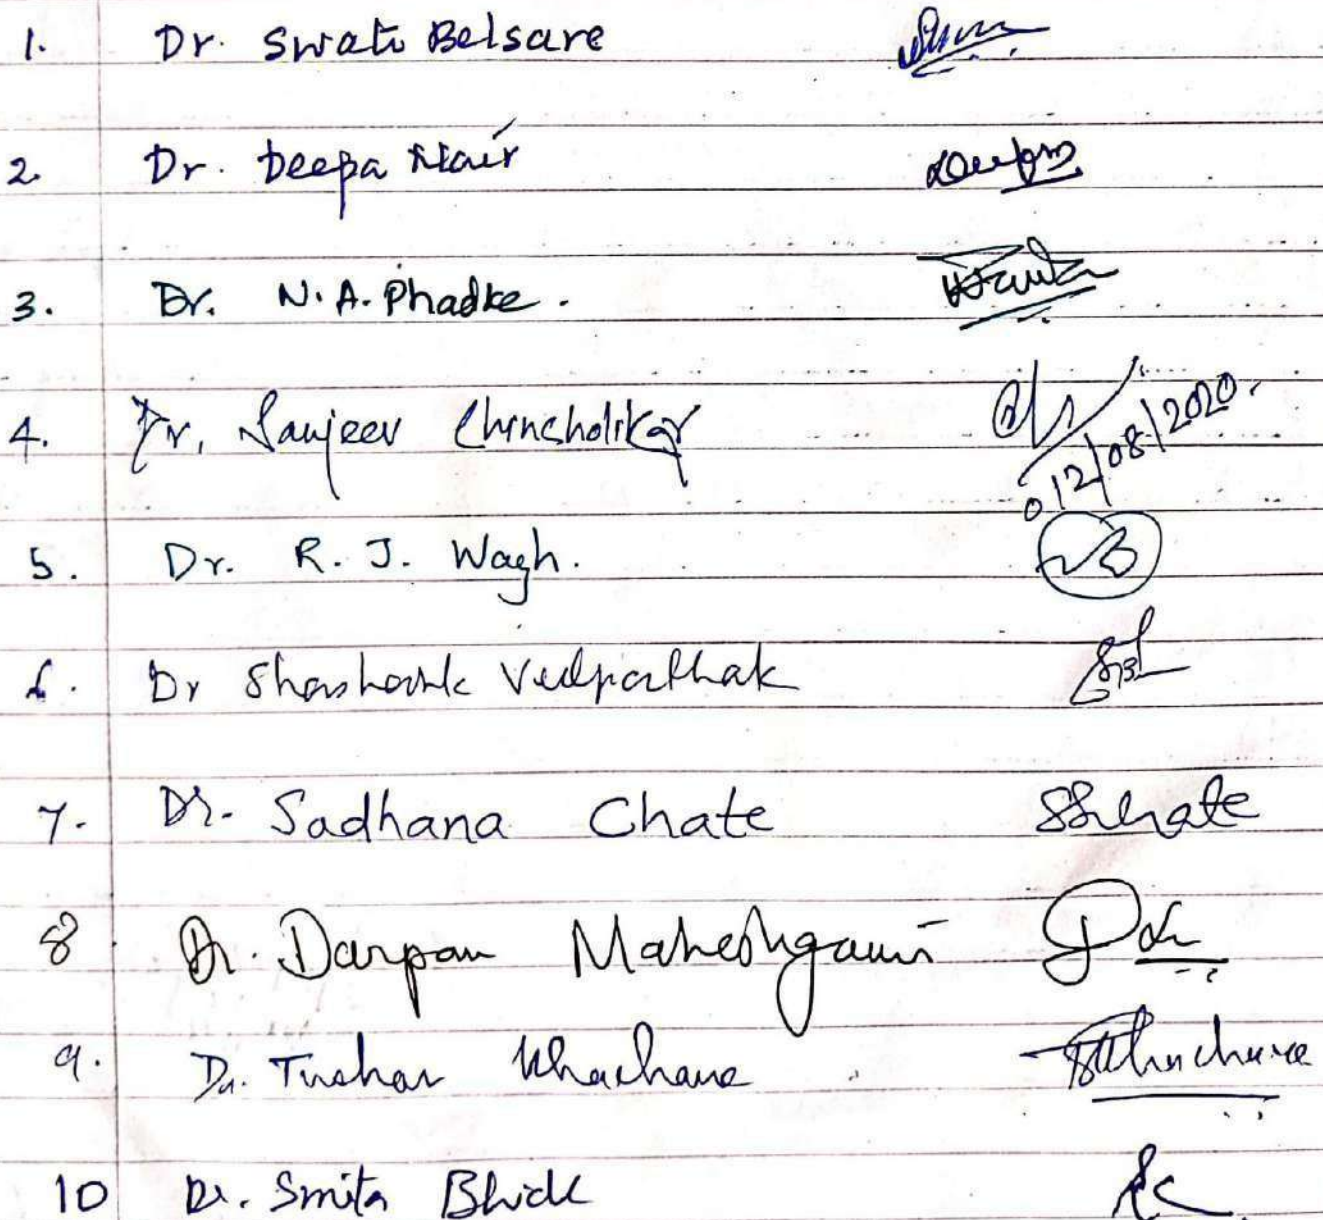 1. Dr. Swati Belsare
2. Dr. Deepa Nair
3. Dr. N. A. Phadke.
4. Dr. Sanjeev Chincholikar 12/08/2020.
5. Dr. R. J. Wagh.
6. Dr Shashank Vedpathak
7. Dr. Sadhana Chate SChate
8 Dr. Darpan Maheshgauri
9. Dr. Tushar Khachane
10 Dr. Smita Bhide